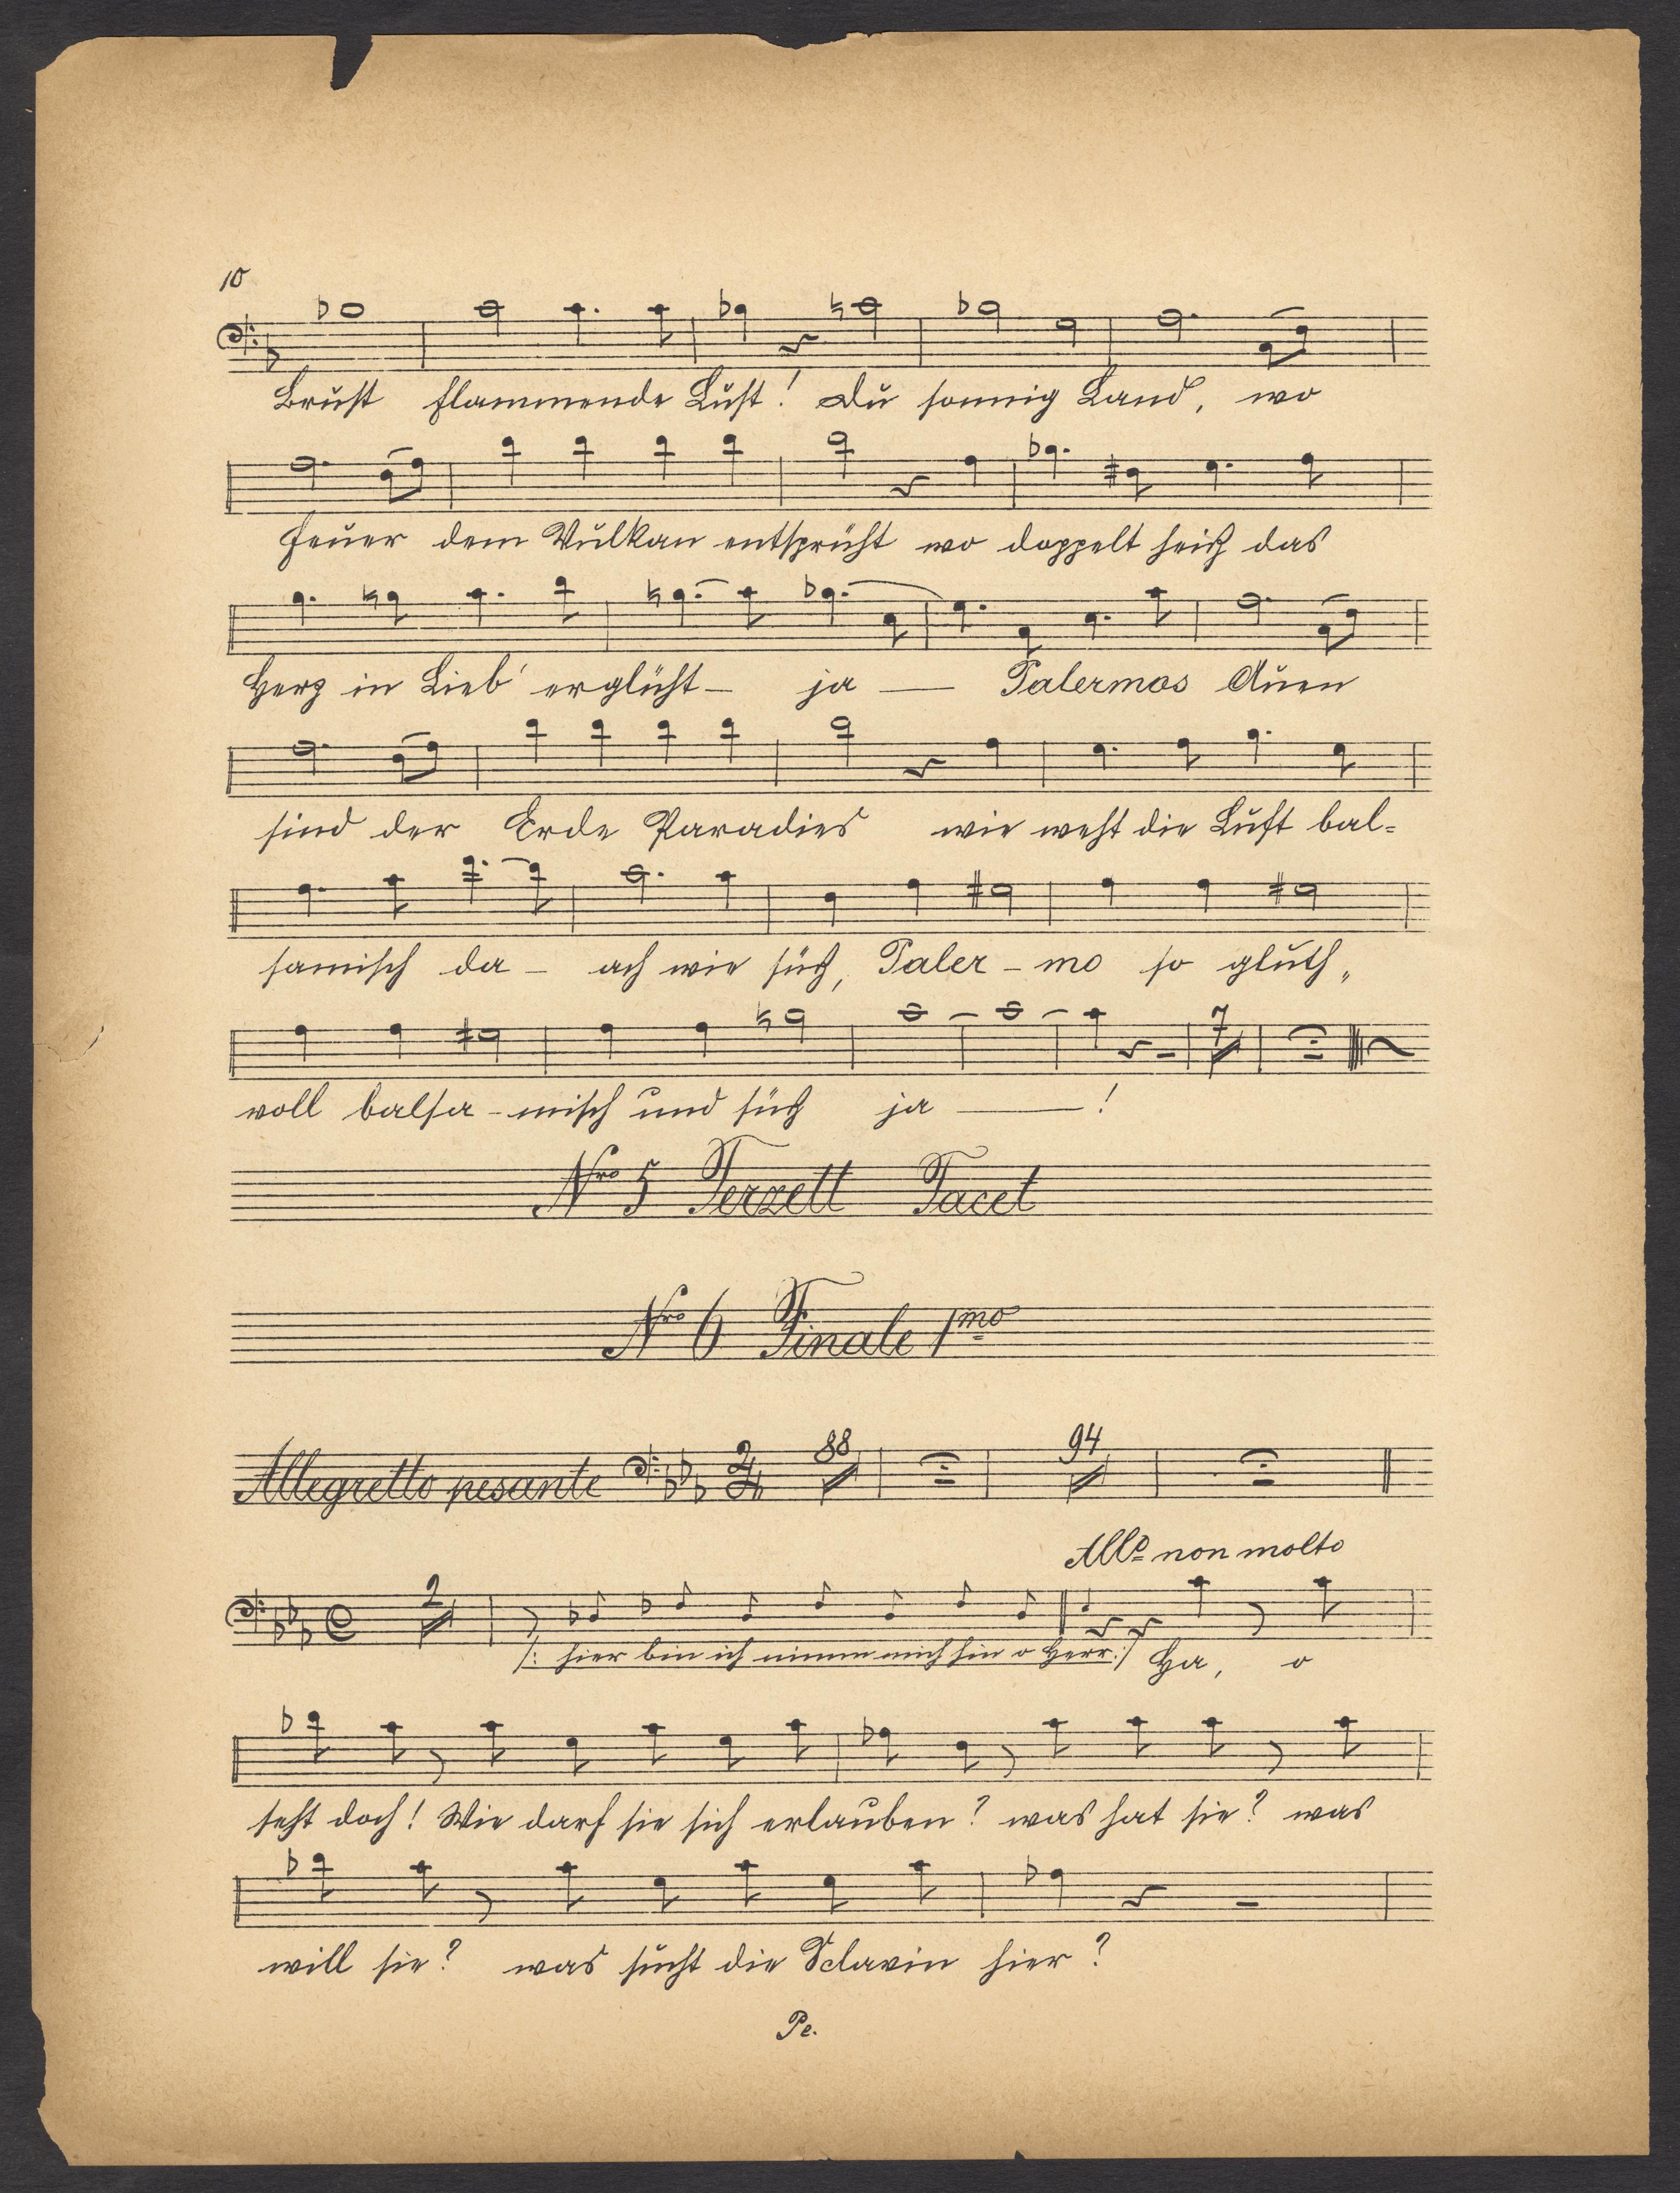 10
Brust flammende Lust! Du sonnig Land, wo
Feuer dem Vulkan entsprüht wo doppelt heiß das
Herz in Lieb' erglüht – ja — Palermos Auen
sind der Erde Paradies wie weht die Luft bal=
samisch da – ach wie süß, Paler – mo so gluth„
7
voll balsa – misch und süß ja —— !
Nro 5 Terzett Tacet
Nro 6 Finale 1mo
Allegretto pesante 2/4 88 94
Allo non molto
2
/: hier bin ich nimm mich hin o Herr :/ Ha, o
seht doch! Wie darf sie sich erlauben? was hat sie? was
will sie? was sucht die Sclavin hier?
Pe.